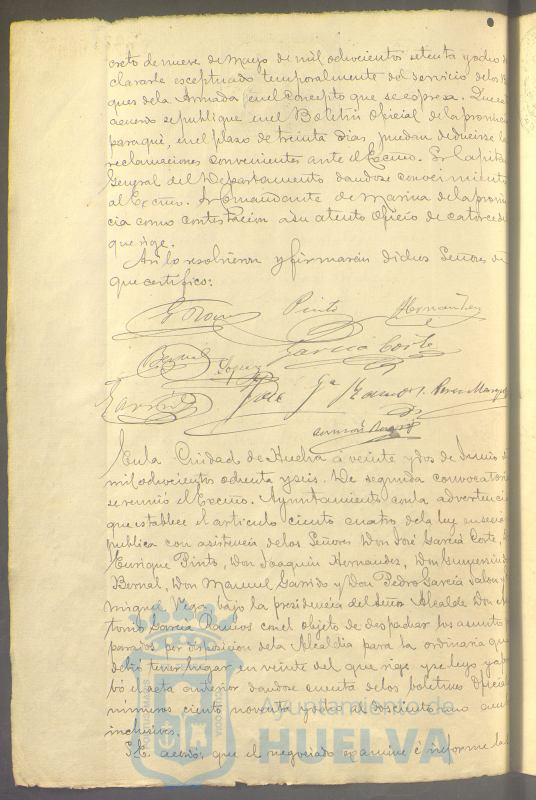 creto de nueve de Mayo de mil ochocientos setenta y ocho de
clararle exceptuado temporalmente del servicio de los Bu
ques de la Armada en el concepto que se espresa. Que este
acuerdo se publique en el Boletin Oficial de la provincia
para que, en el plazo de treinta dias, puedan deducirse las
reclamaciones convenientes ante el Excmo. Sr. Capitan
General del Departamento dandose conocimiento
al Excmo. Sr. Comandante de Marina de la provin
cia como contestacion a su atento oficio de catorce del
que rige.
Asi lo resolvieron y firmaran dichos Señores de
que certifico:
Pinto Hernandez
Bernal Lopez Garcia Corte
Garrido José Ga
En la Ciudad de Huelva á veinte y dos de Junio de
mil ochocientos ochenta y seis. De segunda convocatoria
se reunió el Excmo. Ayuntamiento con la advertencia
que establece el articulo ciento cuatro de la ley en sesion
publica con asistencia de los Señores Don José Garcia Corte,
Enrique Pinto, Don Joaquin Hernandez, Don Gumersindo
Bernal, Don Manuel Garrido y Don Pedro Garcia Jalon y
Miguel Vega bajo la presidencia del Señor Alcalde Don An
tonio Garcia Ramos con el objeto de despachar los asuntos
parados por disposicion de la Alcaldia para la ordinaria que
debió tener lugar en veinte del que rige y se leyo y apro
bó el acta anterior dandose cuenta de los boletines Oficiales
números ciento noventa y ocho al doscientos uno ambos
inclusives.
S.E. acordó: que el negociado examine é informe la
Ayuntamiento de
HUELVA